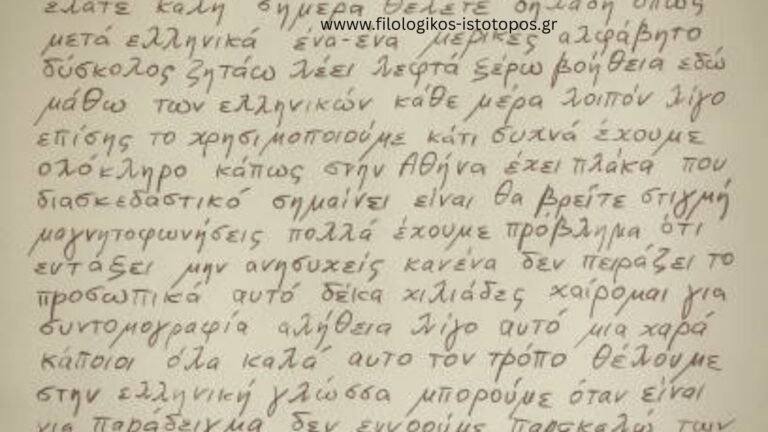 ελάτε καλή σήμερα θέλετε δηλαδή όπως
www.filologikos-istotopos.gr
μετά ελληνικά ένα-ένα μερικές αλφάβητο
δύσκολος ζητάω λέει λεφτά ξέρω βοήθεια εδώ
μάθω των ελληνικών κάθε μέρα λοιπόν λίγο
επίσης το χρησιμοποιούμε κάτι συχνά έχουμε
ολόκληρο κάπως στην Αθήνα έχει πλάκα που
διασκεδαστικό σημαίνει είναι θα βρείτε στιγμή
μαγνητοφωνήσεις πολλά έχουμε πρόβλημα ότι
εντάξει μην ανησυχείς κανένα δεν πειράζει το
προσωπικά αυτό δέκα χιλιάδες χαίρομαι για
συντομογραφία αλήθεια λίγο αυτό μια χαρά
κάποιοι όλα καλά αυτο τον τρόπο θέλουμε
στην ελληνική γλώσσα μπορούμε όταν είναι
για παράδειγμα δεν εννοούμε παρακαλώ των